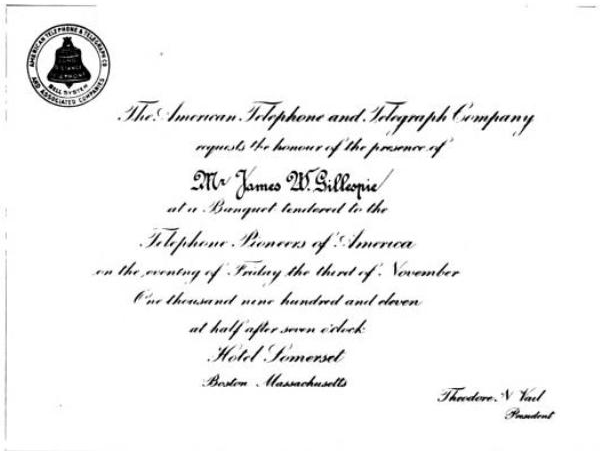 AMERICAN TELEPHONE & TELEGRAPH CO.
AND ASSOCIATED COMPANIES
LONG
DISTANCE
TELEPHONE
BELL SYSTEM
The American Telephone and Telegraph Company
requests the honour of the presence of
Mr James W. Gillespie
at a Banquet tendered to the
Telephone Pioneers of America
on the evening of Friday the third of November
One thousand nine hundred and eleven
at half after seven o'clock
Hotel Somerset
Boston Massachusetts
Theodore N Vail
President